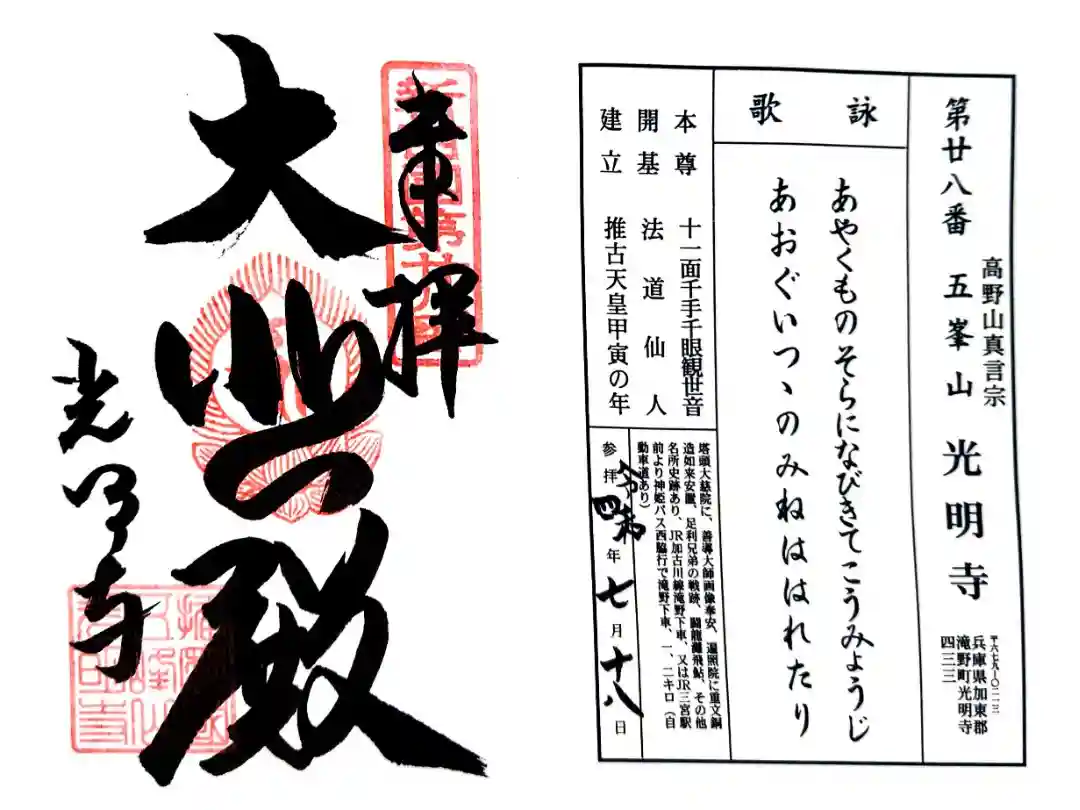 第廿八番 五峯山 光明寺
高野山真言宗
兵庫県加東郡
滝野町光明寺
四三三
詠歌
あやくものそらになびきてこうみょうじ
あおぐいつヽのみねははれたり
本尊 十一面千手千眼観世音
開基 法道仙人
建立 推古天皇甲寅の年
塔頭大慈院に、善導大師画像奉安、遍照院に重文銅
造如来安置、足利兄弟の戦跡、闘龍灘飛鮎、その他
名所史跡あり、JR加古川線滝野下車、又はJR三宮駅
前より神姫バス西脇行で滝野下車、一、二キロ(自
動車道あり)
参拝 令和四年七月十八日
奉拝
大悲殿
光明寺